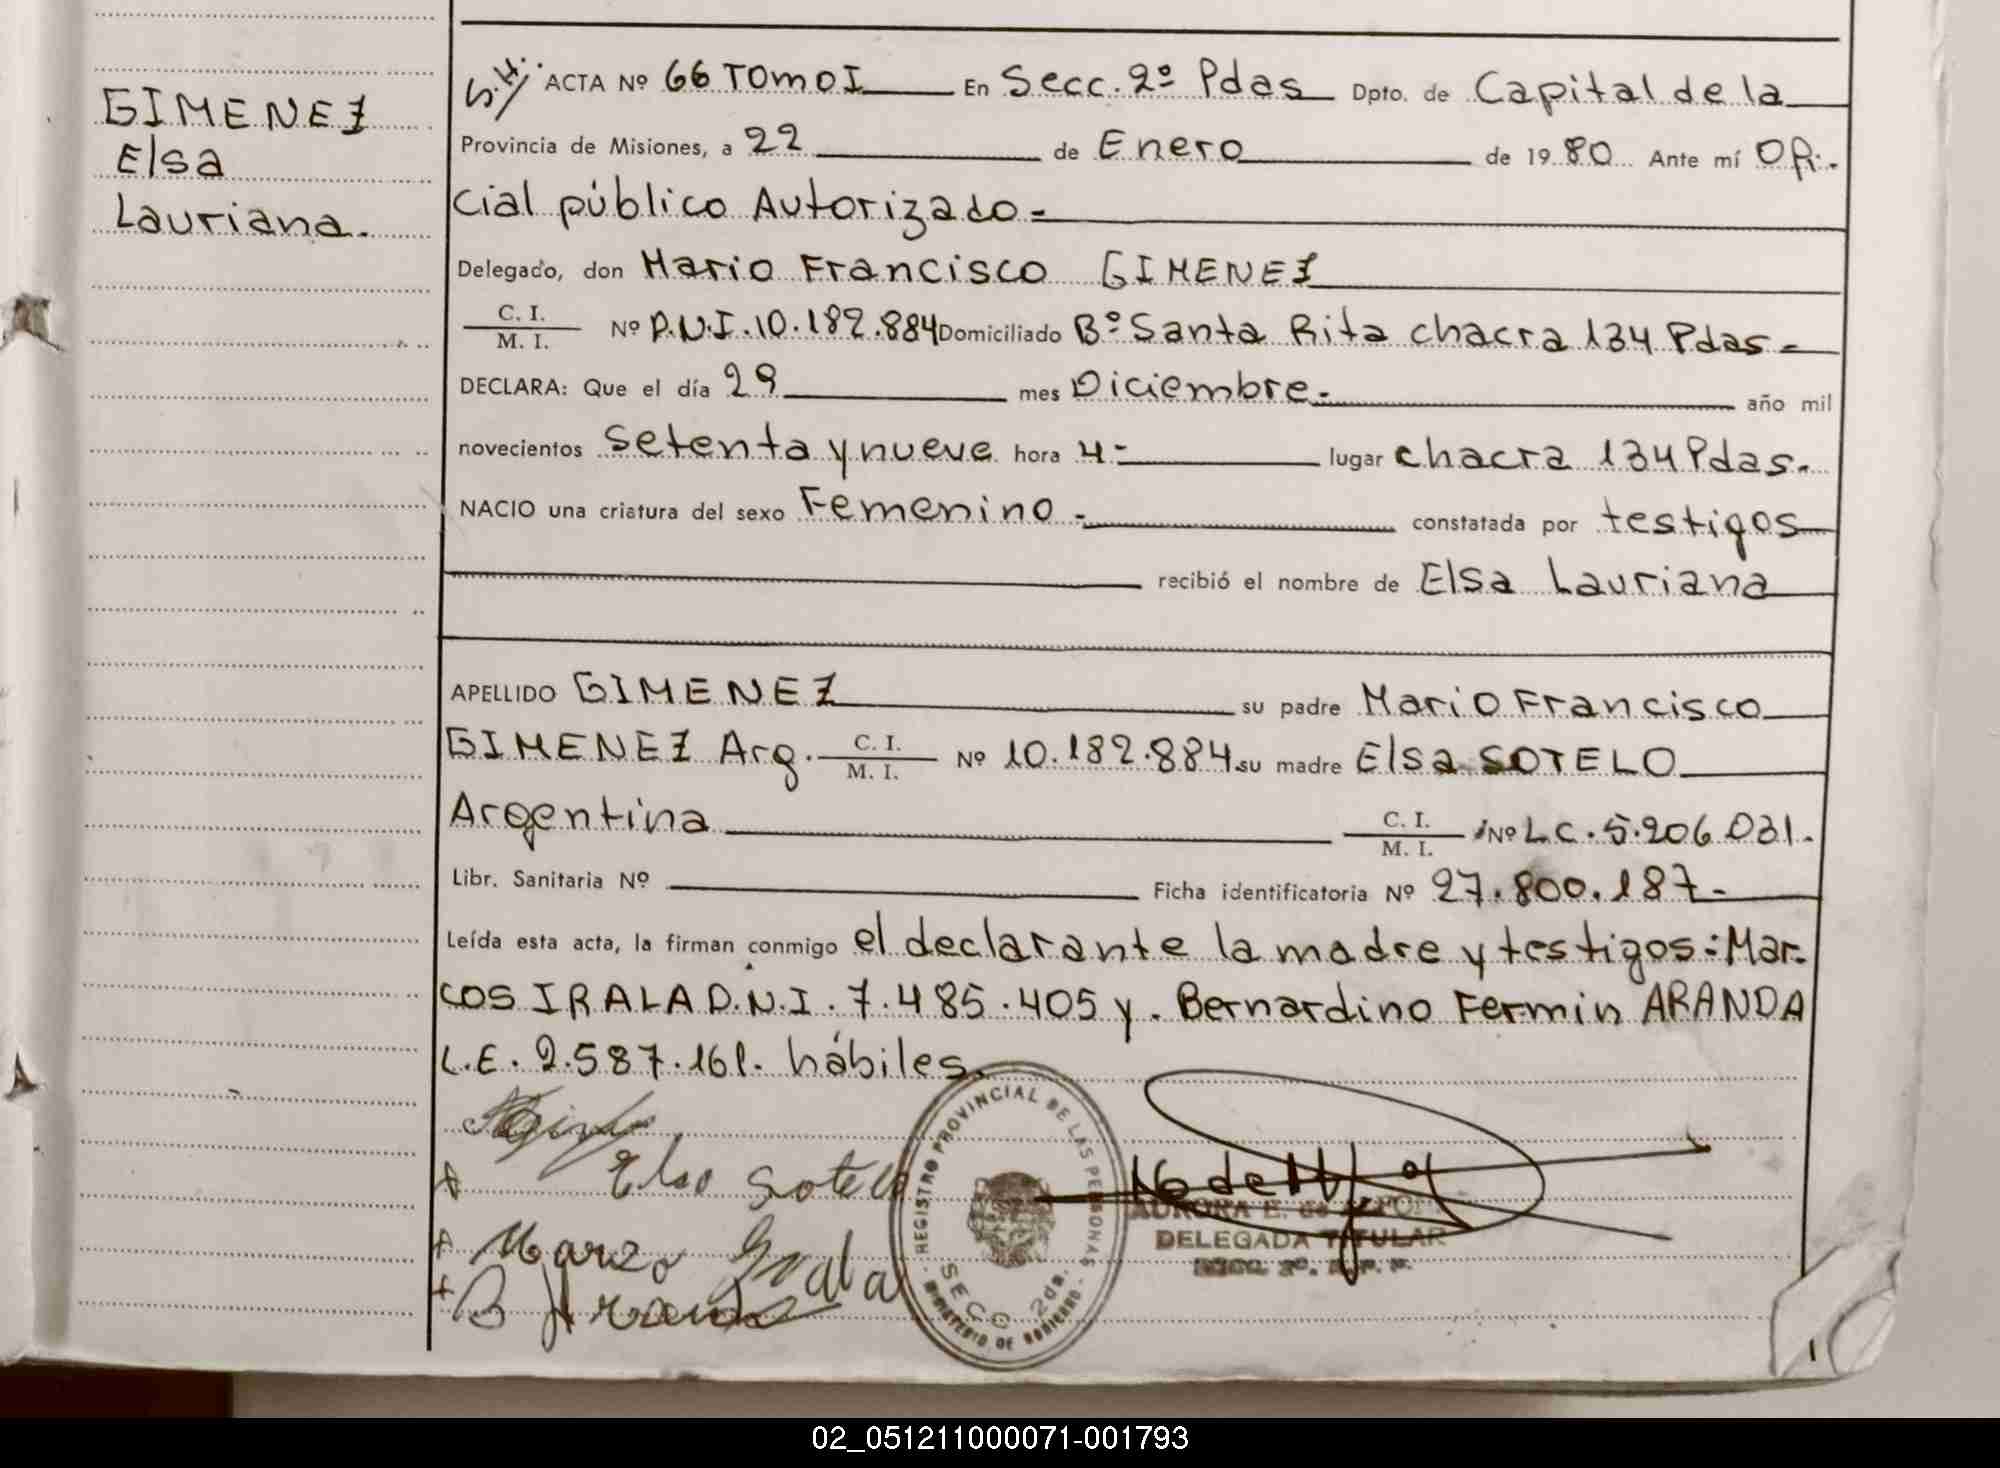 GIMENEZ
Elsa
Lauriana.
S.H. ACTA Nº 66 TOMO I En Secc. 2º Pdas Dpto. de Capital de la
Provincia de Misiones, a 22 de Enero de 1980 Ante mí Ofi-
cial público Autorizado-
Delegado, don Mario Francisco GIMENEZ
C. I.
M. I. Nº D.N.I. 10.182.884 Domiciliado Bº Santa Rita chacra 134 Pdas-
DECLARA: Que el día 29 mes Diciembre- año mil
novecientos setenta y nueve hora 4- lugar chacra 134 Pdas.
NACIO una criatura del sexo Femenino- constatada por testigos
recibió el nombre de Elsa Lauriana
APELLIDO GIMENEZ su padre Mario Francisco
GIMENEZ Arg. C. I.
M. I. Nº 10.182.884 su madre Elsa SOTELO
Argentina C. I.
M. I. Nº L.C. 5.206.031.
Libr. Sanitaria Nº Ficha identificatoria Nº 27.800.187-
Leída esta acta, la firman conmigo el declarante la madre y testigos: Mar-
cos IRALA D.N.I. 7.485.405 y. Bernardino Fermin ARANDA
L.E. 2.587.161. hábiles.
Elsa Sotelo
B Aranda
REGISTRO PROVINCIAL DE LAS PERSONAS
SECC 2da.
MINISTERIO DE GOBIERNO
AURORA E. de
DELEGADA TITULAR
02_051211000071-001793